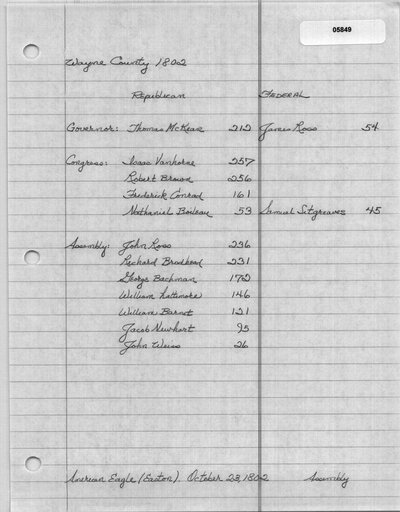 05849
Wayne County 1802
Republican FEDERAL
Governor: Thomas McKean 212 James Ross 54
Congress: Isaac Vanhorne 257
Robert Brown 256
Frederick Conrad 161
Nathaniel Boileau 53 Samuel Sitgreaves 45
Assembly: John Ross 236
Richard Brodhead 231
George Bachman 172
William Lattimore 146
William Barnet 121
Jacob Newhart 95
John Weiss 26
American Eagle (Easton). October 23, 1802 Assembly